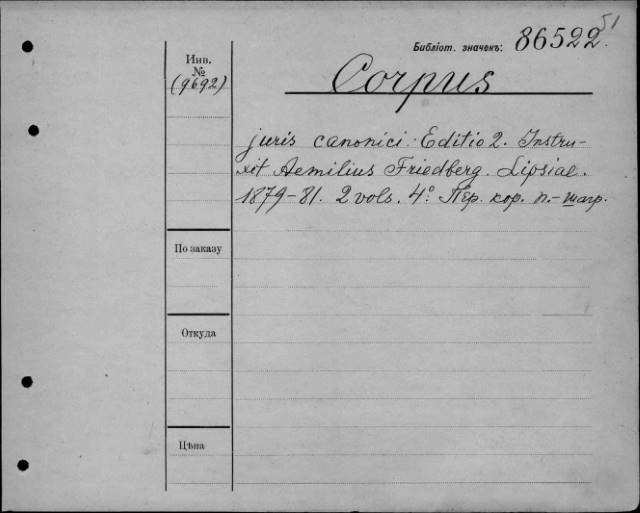 51
Библіот. значекъ: 86522.
Инв.
№
(9692)
Corpus
juris canonici. Editio 2. Instru-
xit Aemilius Friedberg. Lipsiae.
1879-81. 2 vols. 4º. Пер. кор. п.-шагр.
По заказу
Откуда
Цѣна